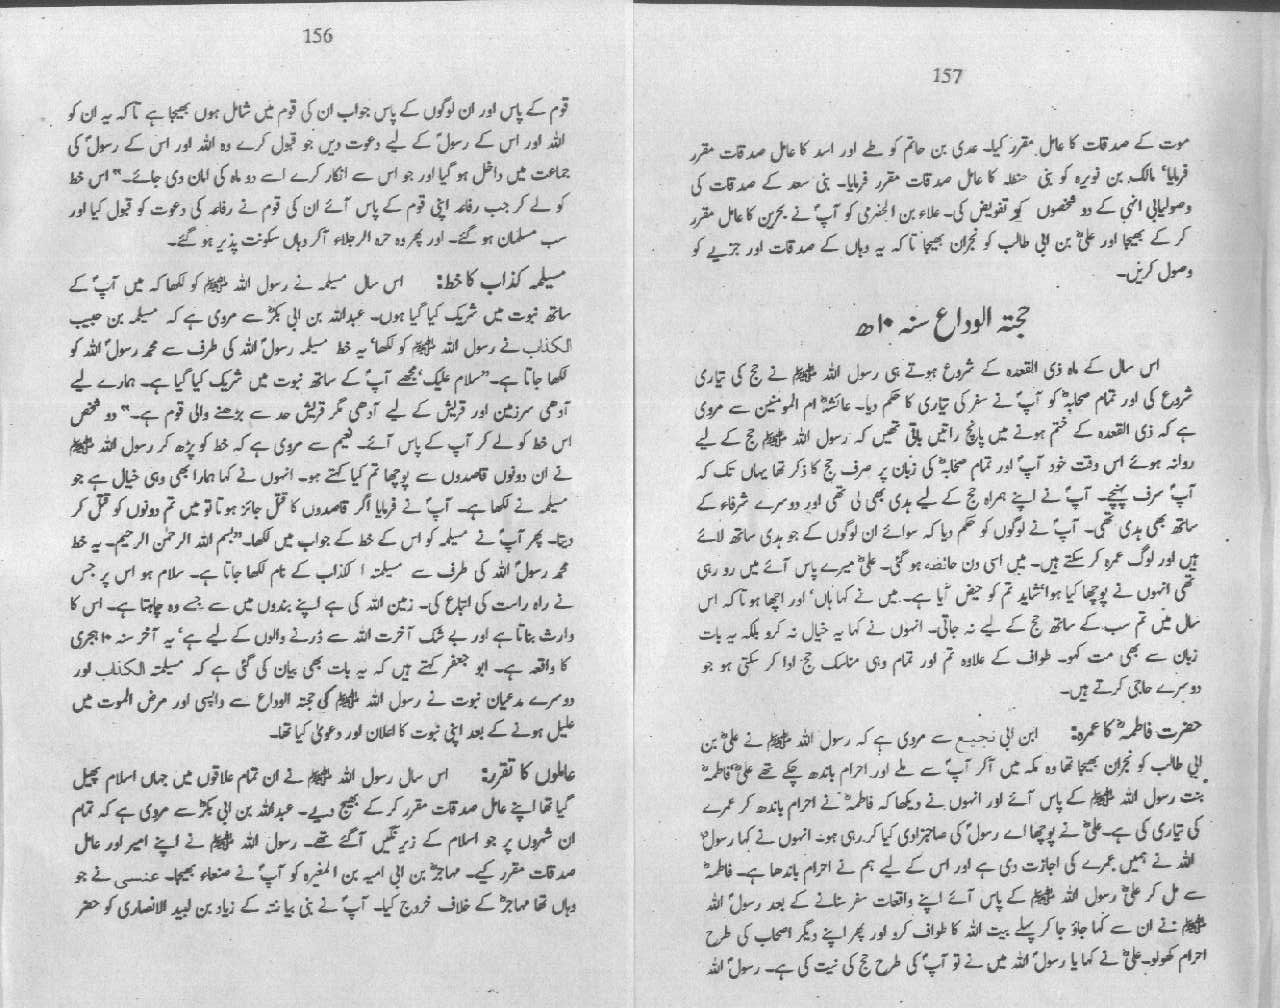 156
قوم کے پاس اور ان لوگوں کے پاس جو اب ان کی قوم میں شامل ہوں بھیجا ہے تاکہ یہ ان کو
اللہ اور اس کے رسولؐ کے لیے دعوت دیں جو قبول کرے وہ اللہ اور اس کے رسولؐ کی
جماعت میں داخل ہو گیا اور جو اس سے انکار کرے اسے دو ماہ کی امان دی جائے۔" اس خط
کو لے کر جب رفاعہ اپنی قوم کے پاس آئے ان کی قوم نے رفاعہ کی دعوت کو قبول کیا اور
سب مسلمان ہو گئے۔ اور پھر وہ حرہ الرجلاء آکر وہاں سکونت پذیر ہو گئے۔
مسیلمہ کذاب کا خط: اس سال مسیلمہ نے رسول اللہ ﷺ کو لکھا کہ میں آپؐ کے
ساتھ نبوت میں شریک کیا گیا ہوں۔ عبداللہ بن ابی بکرؓ سے مروی ہے کہ مسیلمہ بن حبیب
الکذاب نے رسول اللہ ﷺ کو لکھا' یہ خط مسیلمہ رسولؐ اللہ کی طرف سے محمد رسولؐ اللہ کو
لکھا جاتا ہے۔ "سلام علیک' مجھے آپؐ کے ساتھ نبوت میں شریک کیا گیا ہے۔ ہمارے لیے
آدھی سرزمین اور قریش کے لیے آدھی مگر قریش حد سے بڑھنے والی قوم ہے۔" دو شخص
اس خط کو لے کر آپ کے پاس آئے۔ نعیم سے مروی ہے کہ خط کو پڑھ کر رسول اللہ ﷺ
نے ان دونوں قاصدوں سے پوچھا تم کیا کہتے ہو۔ انہوں نے کہا ہمارا بھی وہی خیال ہے جو
مسیلمہ نے لکھا ہے۔ آپؐ نے فرمایا اگر قاصدوں کا قتل جائز ہوتا تو میں تم دونوں کو قتل کر
دیتا۔ پھر آپؐ نے مسیلمہ کو اس کے خط کے جواب میں لکھا۔ "بسم اللہ الرحمٰن الرحیم۔ یہ خط
محمد رسولؐ اللہ کی طرف سے مسیلمتہ الکذاب کے نام لکھا جاتا ہے۔ سلام ہو اس پر جس
نے راہ راست کی اتباع کی۔ زمین اللہ کی ہے اپنے بندوں میں سے جسے وہ چاہتا ہے۔ اس کا
وارث بناتا ہے اور بے شک آخرت اللہ سے ڈرنے والوں کے لیے ہے' یہ آخر سنہ ۱۰ ہجری
کا واقعہ ہے۔ ابو جعفر کہتے ہیں کہ یہ بات بھی بیان کی گئی ہے کہ مسیلمتہ الکذاب اور
دوسرے مدعیان نبوت نے رسول اللہ ﷺ کی حجتہ الوداع سے واپسی اور مرض الموت میں
علیل ہونے کے بعد اپنی نبوت کا اعلان اور دعویٰ کیا تھا۔
عاملوں کا تقرر: اس سال رسول اللہ ﷺ نے ان تمام علاقوں میں جہاں اسلام پھیل
گیا تھا اپنے عامل صدقات مقرر کر کے بھیج دیے۔ عبداللہ بن ابی بکرؓ سے مروی ہے کہ تمام
ان شہروں پر جو اسلام کے زیر نگیں آگئے تھے۔ رسول اللہ ﷺ نے اپنے امیر اور عامل
صدقات مقرر کیے۔ مہاجرؓ بن ابی امیہ بن المغیرہ کو آپؐ نے صنعاء بھیجا۔ عنسی نے جو
وہاں تھا مہاجرؓ کے خلاف خروج کیا۔ آپؐ نے بنی بیاضتہ کے زیاد بن لبید الانصاری کو حضر
157
موت کے صدقات کا عامل مقرر کیا۔ عدی بن حاتم کو طے اور اسد کا عامل صدقات مقرر
فرمایا' مالک بن نویرہ کو بنی حنظلہ کا عامل صدقات مقرر فرمایا۔ بنی سعد کے صدقات کی
وصولیابی انہی کے دو شخصوں کو تفویض کی۔ علاء بن الحضرمی کو آپؐ نے بحرین کا عامل مقرر
کر کے بھیجا اور علیؓ بن ابی طالب کو نجران بھیجا تاکہ یہ وہاں کے صدقات اور جزیے کو
وصول کریں۔
حجتہ الوداع سنہ ۱۰ھ
اس سال کے ماہ ذی القعدہ کے شروع ہوتے ہی رسول اللہ ﷺ نے حج کی تیاری
شروع کی اور تمام صحابہؓ کو آپؐ نے سفر کی تیاری کا حکم دیا۔ عائشہؓ ام المومنین سے مروی
ہے کہ ذی القعدہ کے ختم ہونے میں پانچ راتیں باقی تھیں کہ رسول اللہ ﷺ حج کے لیے
روانہ ہوئے اس وقت خود آپؐ اور تمام صحابہؓ کی زبان پر صرف حج کا ذکر تھا یہاں تک کہ
آپؐ سرف پہنچے۔ آپؐ نے اپنے ہمراہ حج کے لیے ہدی بھی لی تھی اور دوسرے شرفاء کے
ساتھ بھی ہدی تھی۔ آپؐ نے لوگوں کو حکم دیا کہ سوائے ان لوگوں کے جو ہدی ساتھ لائے
ہیں اور لوگ عمرہ کر سکتے ہیں۔ میں اسی دن حائضہ ہو گئی۔ علیؓ میرے پاس آئے میں رو رہی
تھی انہوں نے پوچھا کیا ہوا' شاید تم کو حیض آیا ہے۔ میں نے کہا ہاں' اور اچھا ہوتا کہ اس
سال میں تم سب کے ساتھ حج کے لیے نہ جاتی۔ انہوں نے کہا یہ خیال نہ کرو بلکہ یہ بات
زبان سے بھی مت کہو۔ طواف کے علاوہ تم اور تمام وہی مناسک حج ادا کر سکتی ہو جو
دوسرے حاجی کرتے ہیں۔
حضرت فاطمہؓ کا عمرہ: ابن ابی نجیع سے مروی ہے کہ رسول اللہ ﷺ نے علیؓ بن
ابی طالب کو نجران بھیجا تھا وہ مکہ میں آکر آپؐ سے ملے اور احرام باندھ چکے تھے علیؓ' فاطمہؓ
بنت رسول اللہ ﷺ کے پاس آئے اور انہوں نے دیکھا کہ فاطمہؓ نے احرام باندھ کر عمرے
کی تیاری کی ہے۔ علیؓ نے پوچھا اے رسولؐ کی صاحبزادی کیا کر رہی ہو۔ انہوں نے کہا رسولؐ
اللہ نے ہمیں عمرے کی اجازت دی ہے اور اس کے لیے ہم نے احرام باندھا ہے۔ فاطمہؓ
سے مل کر علیؓ رسول اللہ ﷺ کے پاس آئے اپنے واقعات سفر سنانے کے بعد رسولؐ اللہ
ﷺ نے ان سے کہا جاؤ جا کر پہلے بیت اللہ کا طواف کرو اور پھر اپنے دیگر اصحاب کی طرح
احرام کھولو۔ علیؓ نے کہا یا رسولؐ اللہ میں نے تو آپؐ کی طرح حج کی نیت کی ہے۔ رسولؐ اللہ